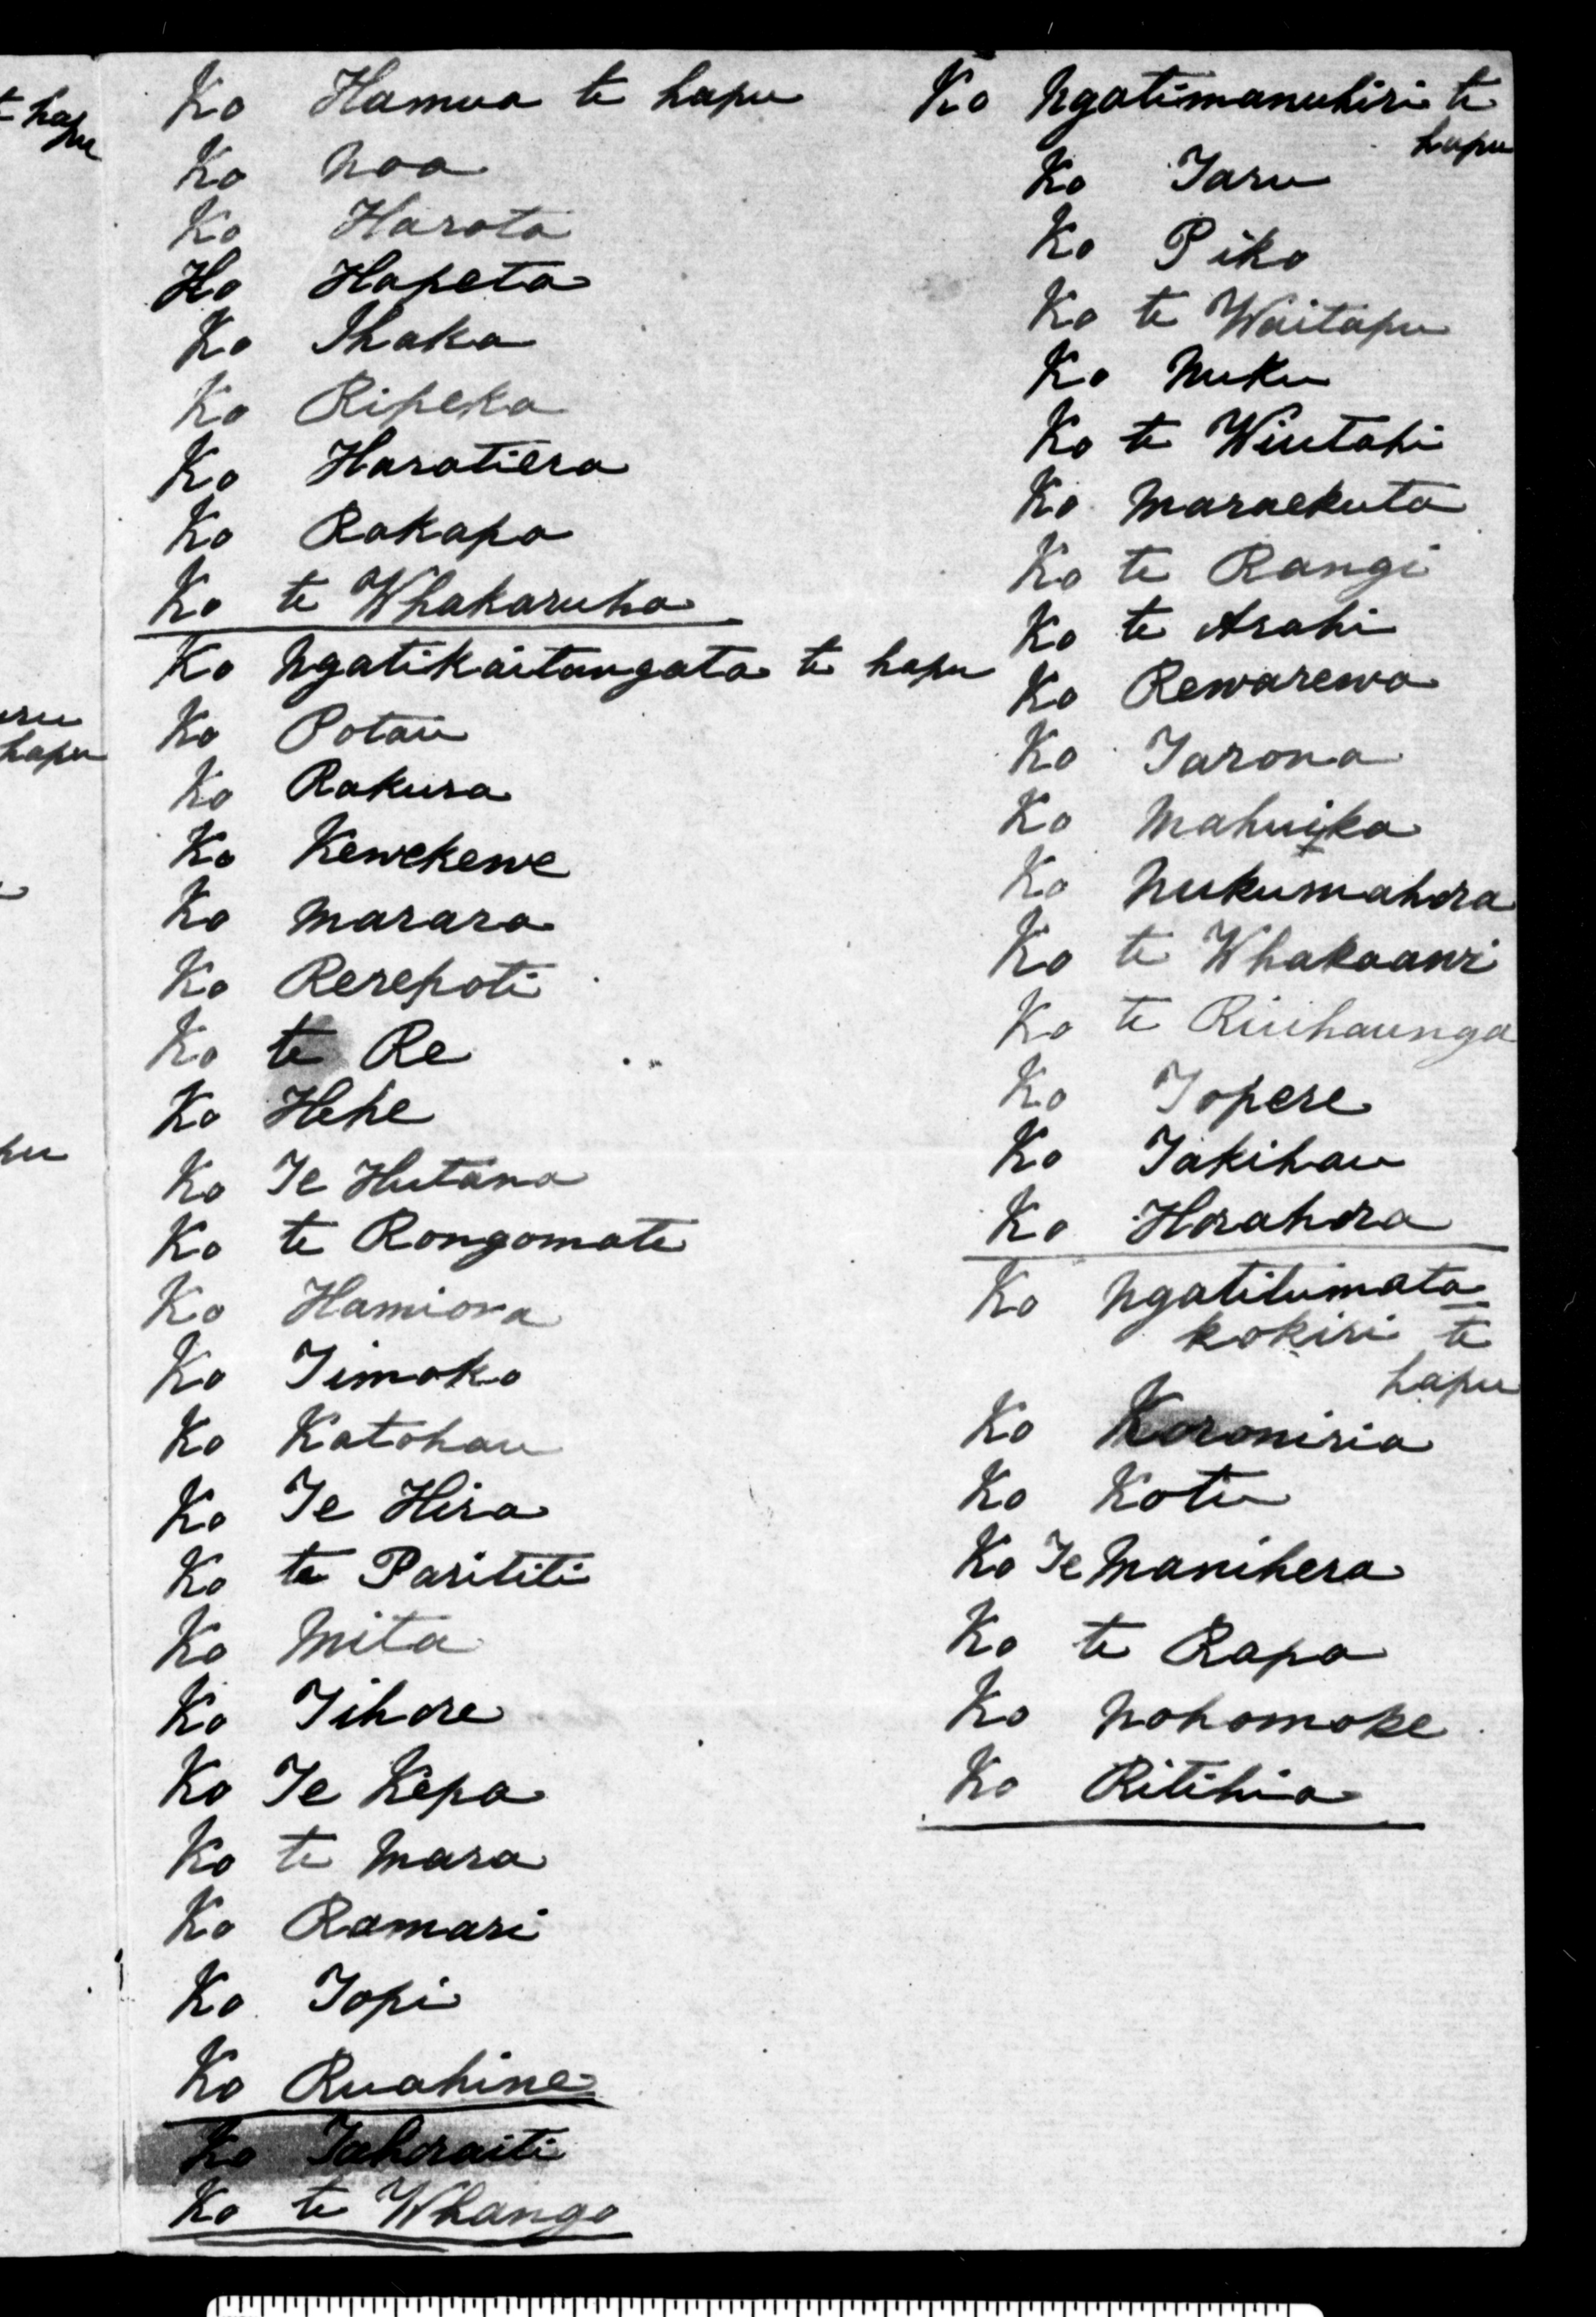 t hapu
uru
hapu
pu
Ko Hamua te hapu
Ko Noa
Ko Harota
Ko Hapeta
Ko Ihaka
Ko Ripeka
Ko Haratiera
Ko Rakapa
Ko te Whakaruha
Ko Ngatikaitangata te hapu
Ko Potau
Ko Rakura
Ko Kewekewe
Ko Marara
Ko Rerepoti
Ko te Re
Ko Hehe
Ko Te Hutana
Ko te Rongomate
Ko Hamiora
Ko Timoko
Ko Katohau
Ko Te Hira
Ko te Parititi
Ko Mita
Ko Tihore
Ko Te Kepa
Ko te Mara
Ko Ramari
Ko Topi
Ko Ruahine
Ko Tahoraiti
Ko te Whango
Ko Ngatimanuhiri te
hapu
Ko Taru
Ko Piko
Ko te Waitapu
Ko Nuku
Ko te Wiutahi
Ko Maraekuta
Ko te Rangi
Ko te Arahi
Ko Rewarewa
Ko Tarona
Ko Mahuika
Ko Nukumahora
Ko te Whakaawi
Ko te Riuihaunga
Ko Topere
Ko Takihau
Ko Horahora
Ko Ngatitumata-
kokiri te
hapu
Ko Koroniria
Ko Kotu
Ko Te Manihera
Ko te Rapa
Ko Nohomoke
Ko Ritihia